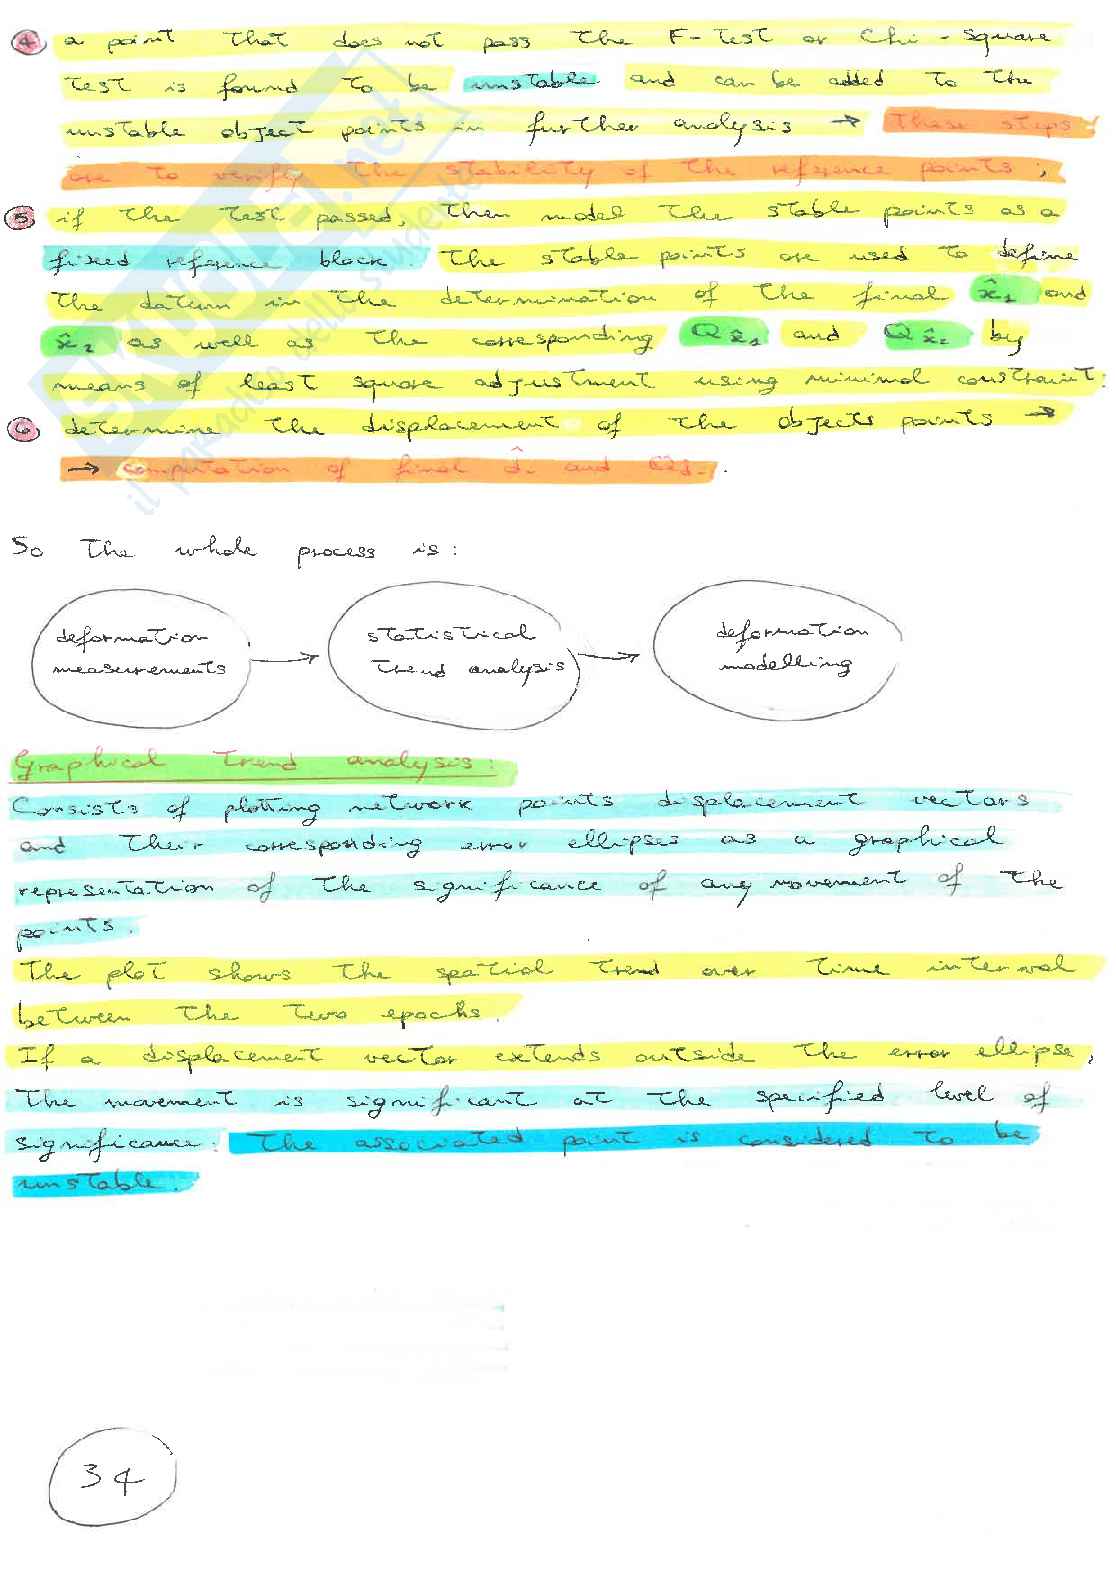 ④ a point that does not pass the F-test or Chi-square
test is found to be unstable and can be added to the
unstable object points in further analysis → These steps
are to verify the stability of the reference points;
⑤ if the test passed, then model the stable points as a
fixed reference block. The stable points are used to define
the datum in the determination of the final x̂₁ and
x̂₂ as well as the corresponding Qx̂₁ and Qx̂₂ by
means of least square adjustment using minimal constraint;
⑥ determine the displacement of the objects points →
→ computation of final d̂. and
So the whole process is:
deformation
measurements
statistical
trend analysis
deformation
modelling
Graphical trend analysis:
Consists of plotting network points displacement vectors
and their corresponding error ellipses as a graphical
representation of the significance of any movement of the
points.
The plot shows the spatial trend over time interval
between the two epochs.
If a displacement vector extends outside the error ellipse,
the movement is significant at the specified level of
significance. The associated point is considered to be
unstable.
34
SKUOLA.net
il paradiso dello studente